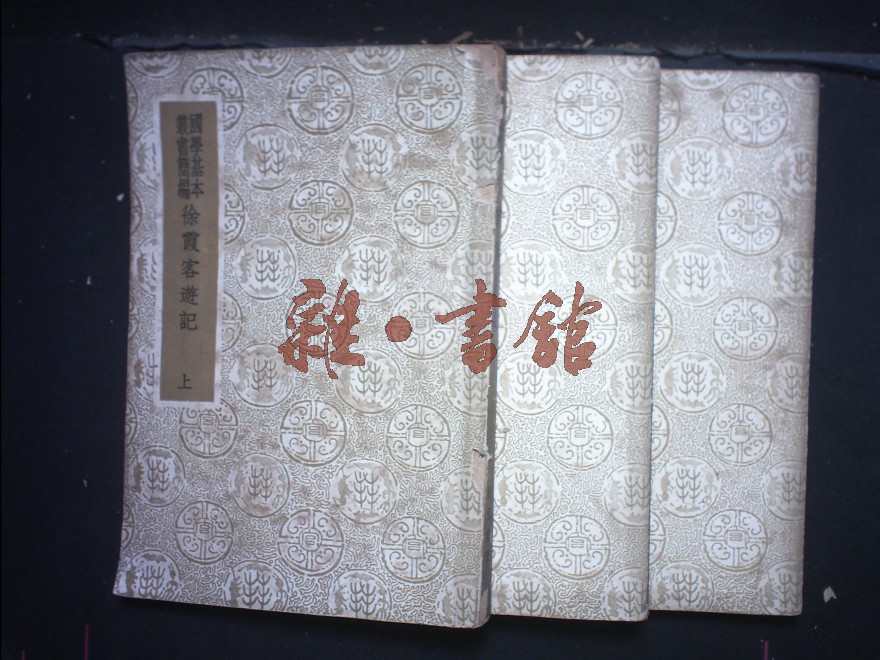 國學基本
叢書簡編
徐霞客遊記
上
雜·書館